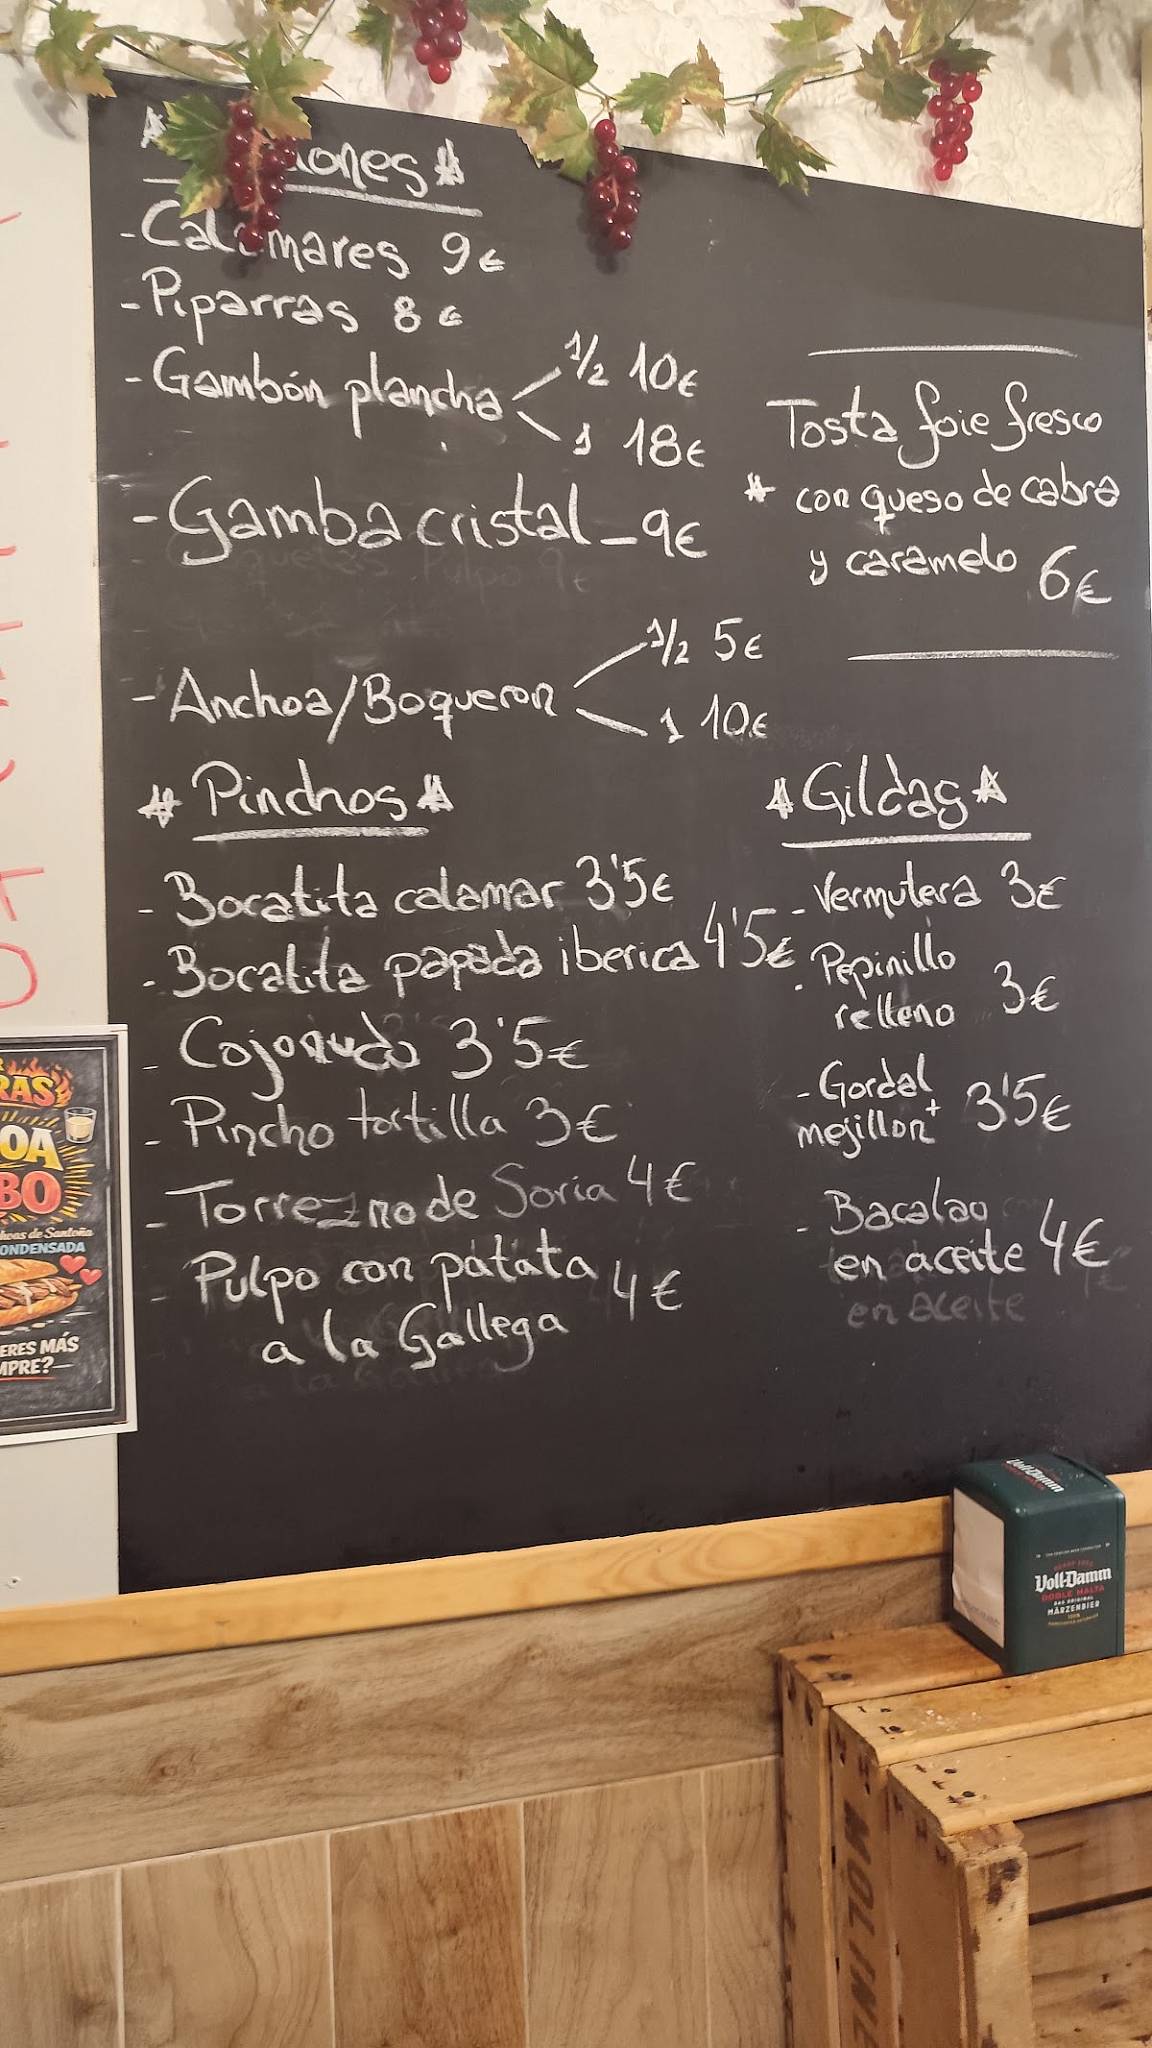 - Calamares 9€
- Piparras 8€
- Gambón plancha
1/2 10€
1 18€
- Gamba cristal - 9€
- Anchoa/Boqueron
1/2 5€
1 10€
Tosta foie fresco
* con queso de cabra
y caramelo 6€
* Pinchos *
- Bocatita calamar 3'5€
- Bocatita papada iberica 4'5€
- Cojonudo 3'5€
- Pincho tortilla 3€
- Torrezno de Soria 4€
- Pulpo con patata 4€
a la Gallega
* Gildas *
- Vermutera 3€
- Pepinillo
relleno 3€
- Gordal
mejillon + 3'5€
- Bacalao
en aceite 4€
en aceite
RAS
OA
BO
ONDENSADA
ERES MÁS
MPRE?
Voll-Damm
Voll-Damm
DOBLE MALTA
MÄRZENBIER
MOLINE